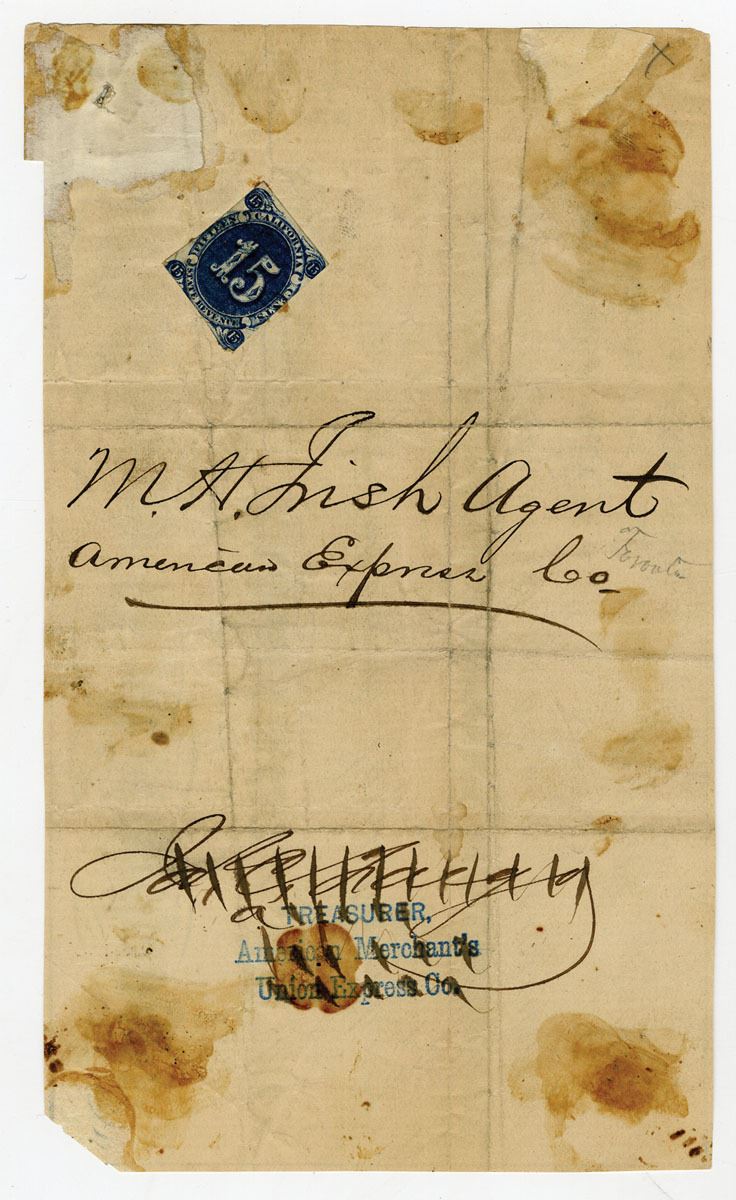 x
FIFTEEN CALIFORNIA
15 15 15 15
15
STATE REVENUE CENTS.
M. H. Irish Agent
American Express Co
Toronto
TREASURER,
American Merchant's
Union Express Co.